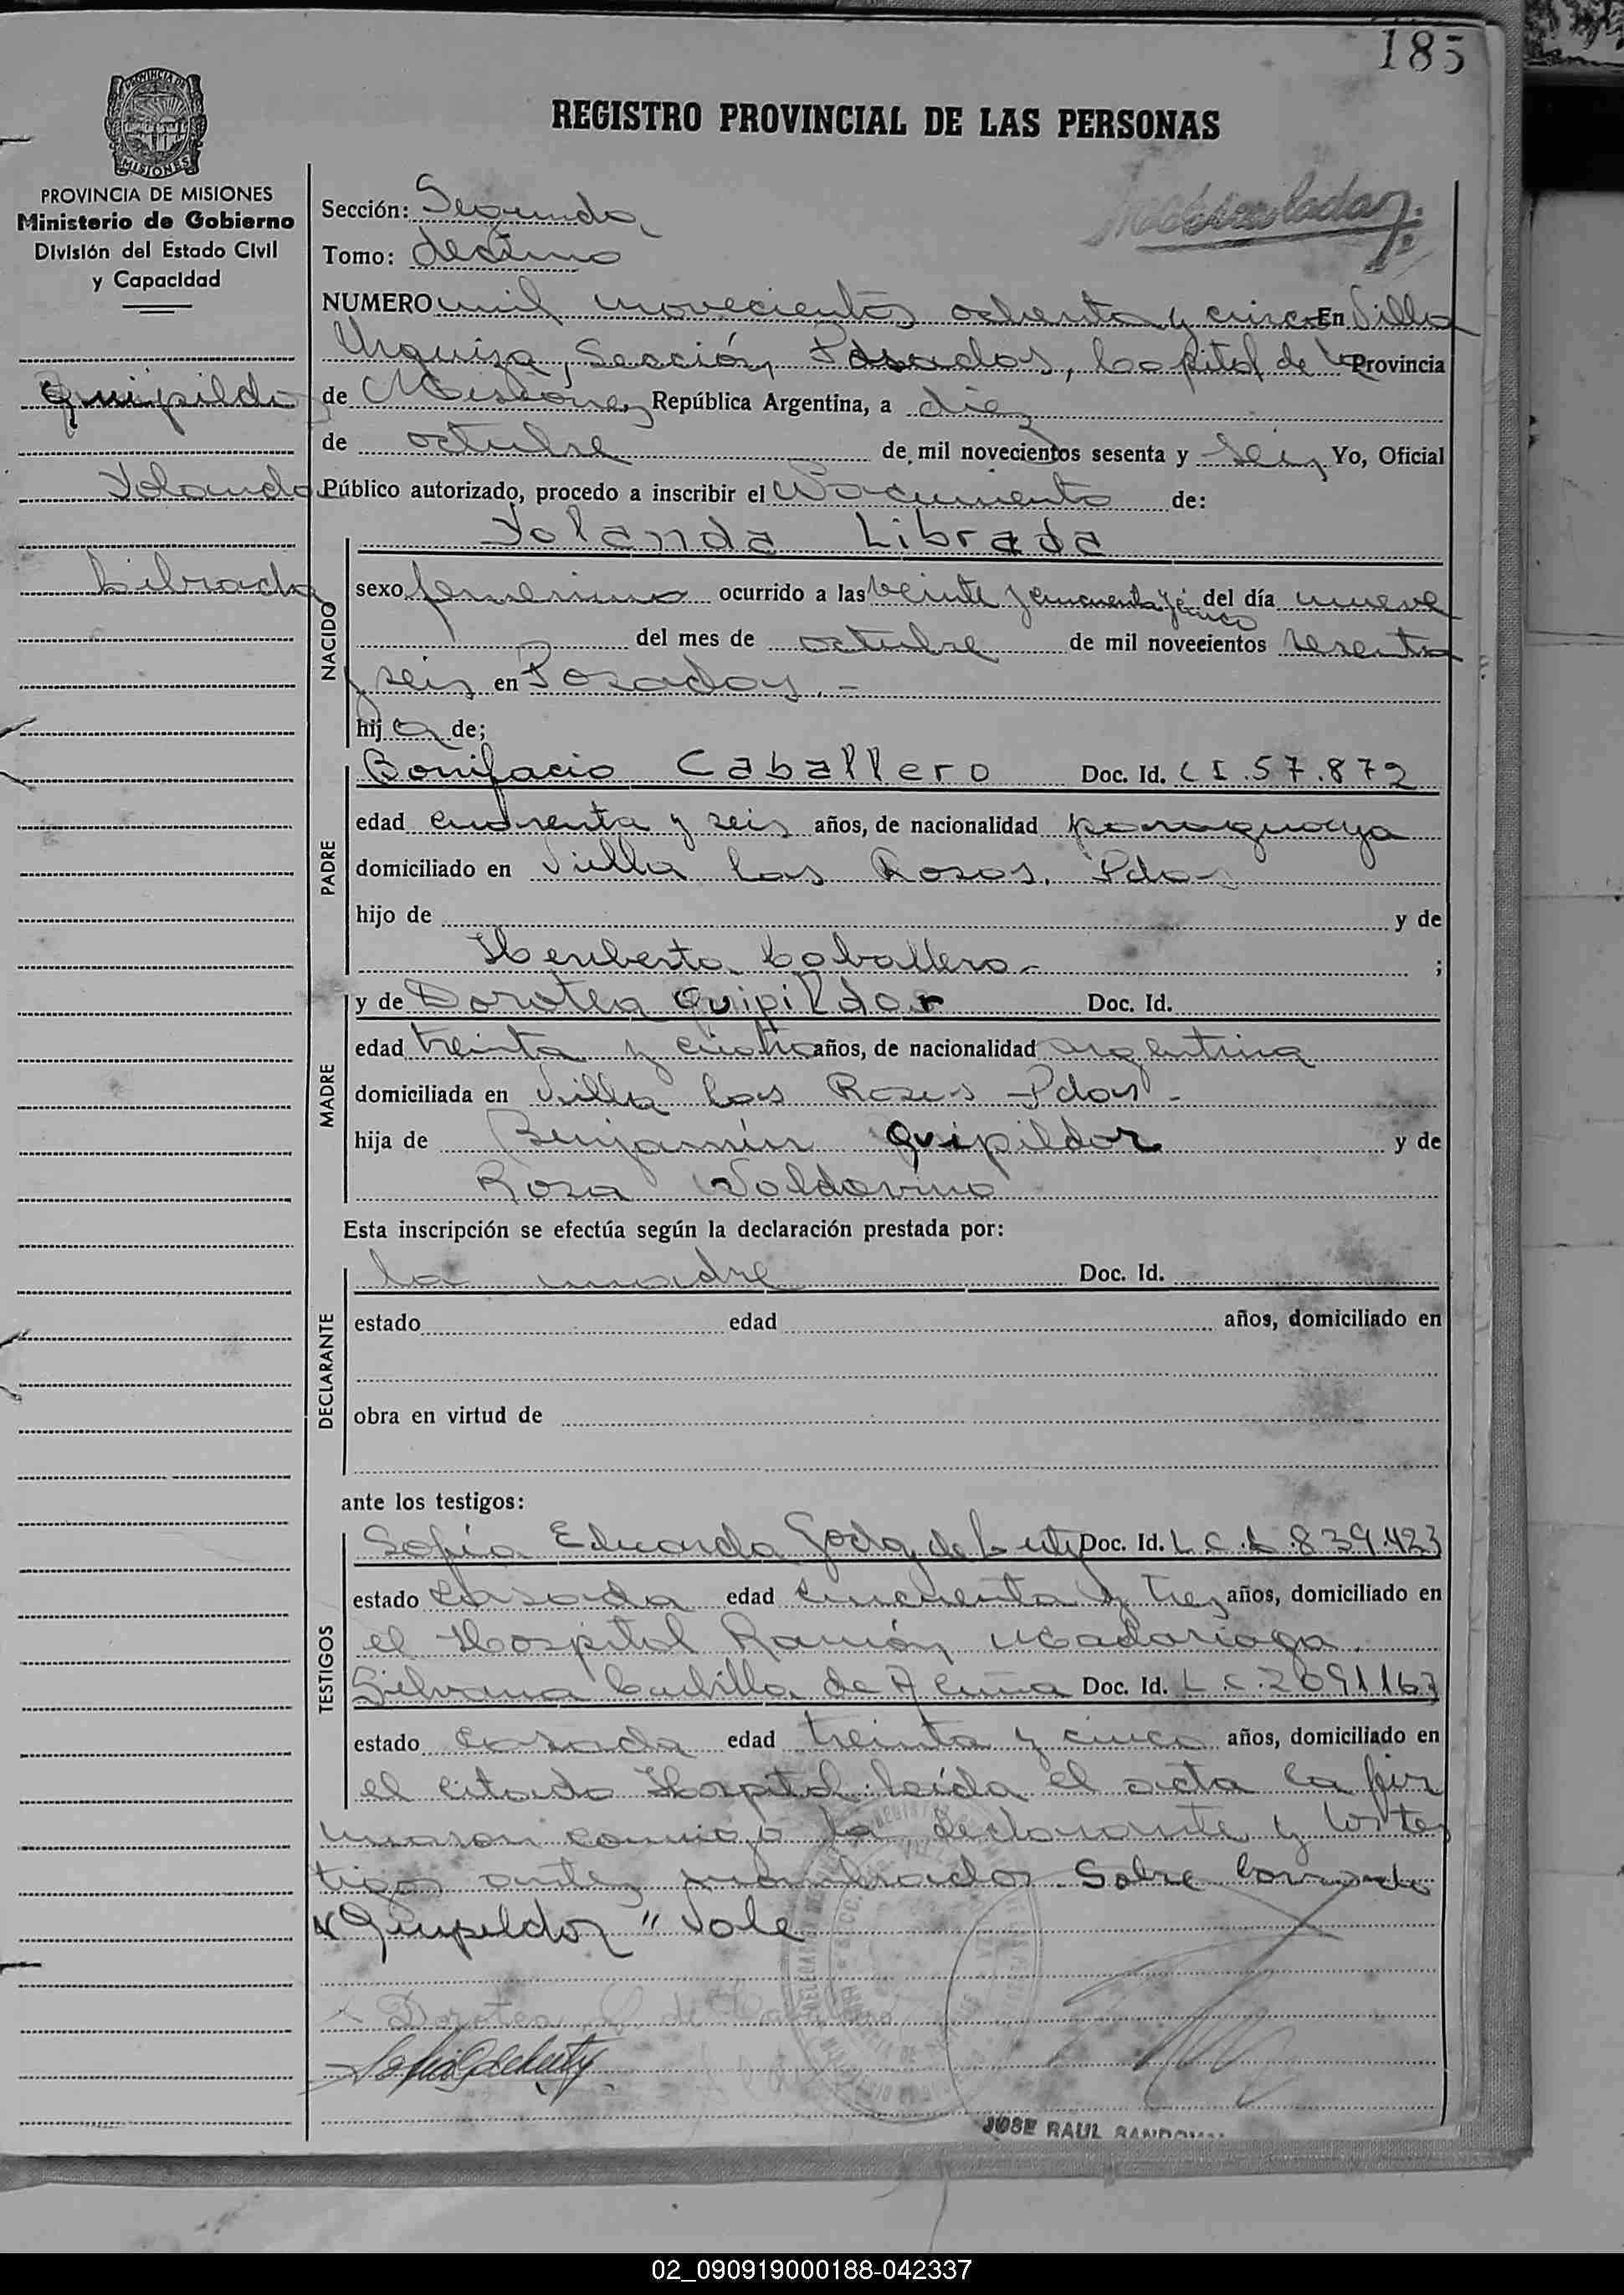 185
REGISTRO PROVINCIAL DE LAS PERSONAS
PROVINCIA DE MISIONES
MISIONES
PROVINCIA DE MISIONES
Ministerio de Gobierno
División del Estado Civil
y Capacidad
Quipildo
Yolanda
Librada
Sección: Segunda
Tomo: decimo
NUMERO mil novecientos ochenta y cinco En Villa
Urquiza, Sección Posadas, Capital de la Provincia
de Misiones República Argentina, a diez
de octubre de mil novecientos sesenta y seis Yo, Oficial
Público autorizado, procedo a inscribir el Nacimiento de:
NACIDO
Yolanda Librada
sexo femenino ocurrido a las veinte y cincuenta y cinco del día nueve
del mes de octubre de mil novecientos sesenta
y seis en Posadas.-
hija de;
PADRE
Bonifacio Caballero Doc. Id. C I. 57.872
edad cuarenta y seis años, de nacionalidad paraguaya
domiciliado en Villa Las Rosas. Pdas
hijo de y de
Heriberta Caballero- ;
MADRE
y de Dorotea Quipildor Doc. Id.
edad treinta y cuatro años, de nacionalidad argentina
domiciliada en Villa Las Rosas Pdas-
hija de Benjamín Quipildor y de
Rosa Valdovino
Esta inscripción se efectúa según la declaración prestada por:
DECLARANTE
la madre Doc. Id.
estado edad años, domiciliado en
obra en virtud de
ante los testigos:
TESTIGOS
Sofía Eduarda Doc. Id. L.C. 839.423
estado casada edad cincuenta y tres años, domiciliado en
el Hospital Ramón Madariaga.
Silvana de Acuña Doc. Id. L.C. 2091163
estado casada edad treinta y cinco años, domiciliado en
el citado Hospital leída el acta la fir
maron conmigo la declarante y los tes
tigos antes nombrados. Sobre borrado
"Quipildor" Vale
Dorotea Q. de Caballero
JOSE RAUL
02_090919000188-042337